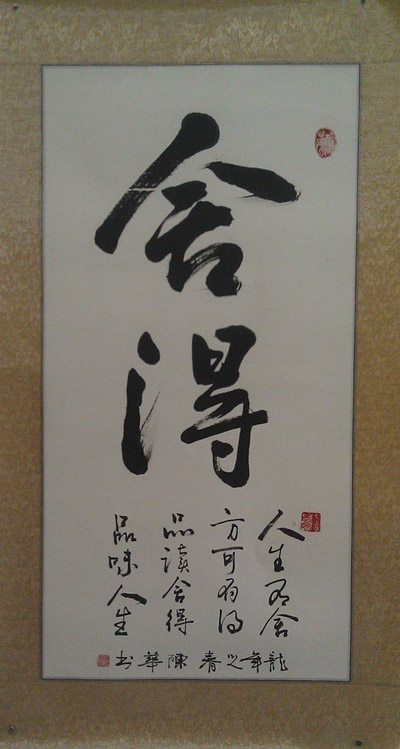 舍得
人生有舍
方可有得
品读舍得
品味人生
龍年之春 陳華书